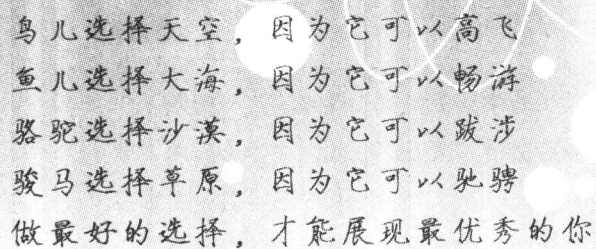 鸟儿选择天空，因为它可以高飞
鱼儿选择大海，因为它可以畅游
骆驼选择沙漠，因为它可以跋涉
骏马选择草原，因为它可以驰骋
做最好的选择，才能展现最优秀的你